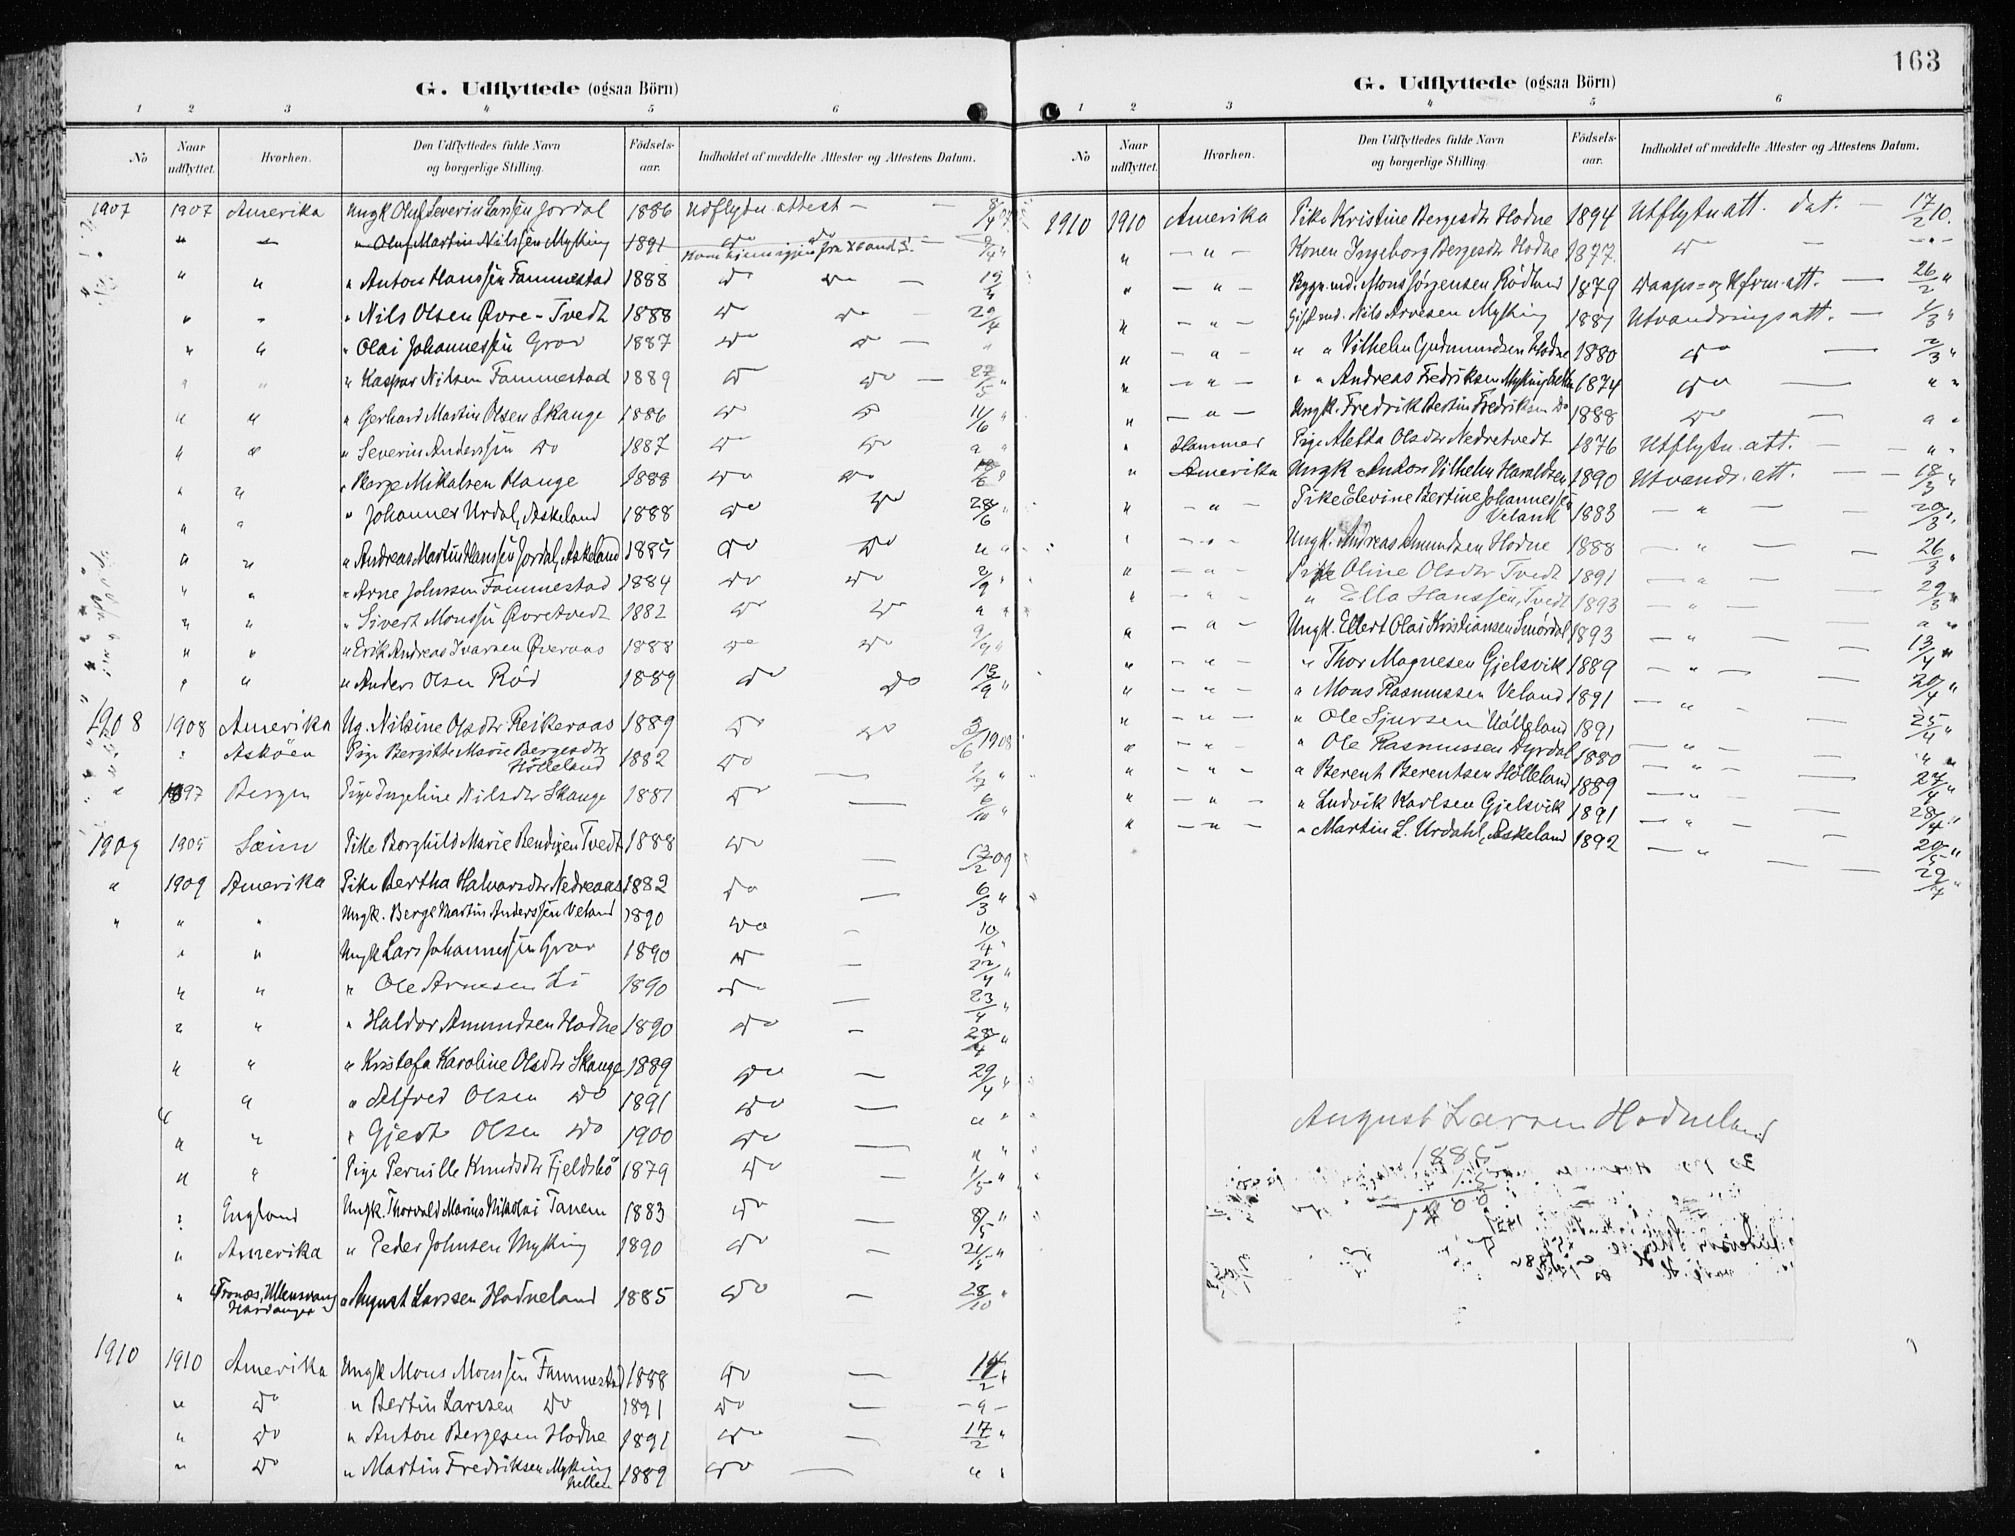 163
G. Udflyttede (ogsaa Börn)
1 2 3 4 5 6
No Naar udflyttet. Hvorhen. Den Udflyttedes fulde Navn og borgerlige Stilling. Födselsaar. Indholdet af meddelte Attester og Attestens Datum.
1907 1907 Amerika Ungk. Oluf Severin Larssen Jordal 1886 Udflytn. attest - 8/4 07
" — " Oluf Martin Nilssen Myking 1891 do do 9/4 "
" " " Anton Hanssen Fammestad 1888 do do — 19/4
" " " Nils Olsen Øvre-Tvedt 1888 do do 29/4
" " " Olai Johannessen Grov 1887 do do — "
" " " Kaspar Nilsen Fammestad 1889 do do — 22/5 "
" " " Gerhard Martin Olsen Skauge 1886 do do 11/6 "
" " " Severin Anderssen do 1887 do do " "
" " " Berge Mikalsen Hauge 1888 do do /6 "
" " " Johannes Urdal, Askeland 1888 do do 28/6 "
" " " Andreas Martin Hanssen Jordal, Askeland 1885 do do " "
" " " Arne Johnsen Fammestad 1884 do do 2/9 "
" " " Sivert Monssen Øvretvedt 1882 do do " "
" " " Erik Andreas Ivarsen Øveraas 1888 do do 9/9 "
" " " Anders Olsen Röd 1889 do do 12/9 "
1908 1908 Amerika Ug. Nilsine Olsdtr Reikeraas 1889 do do 3/6 1908
" Asköen Pige Bergitte Marie Bergesdtr Hölleland 1882 do — 1/7 "
" 1897 Bergen Pige Ingeline Nilsdtr Skauge 1881 do — 6/10 "
1909 1905 Sæim Pike Borghild Marie Bendixen Tvedt 1888 do — 13/2 09
" 1909 Amerika Pike Bertha Halvorsdtr Nedreaas 1882 do — 6/3 "
" " " Ungk. Berge Martin Anderssen Veland 1890 do - 10/4 "
" " Ungk Lars Johannessen Grov 1890 do — 22/4 "
" " " Ole Arnesen Li 1890 do — 23/4 "
" " " Haldor Amundsen Hodne 1890 do — 28/4 "
" " " Kristofa Karoline Olsdtr Skauge 1889 do — 29/4 "
" " " Alfred Olsen do 1891 do — " "
" " " Gjert Olsen do 1900 do — " "
" " Pige Pernille Knudsdtr Fjeldsbö 1879 do 1/5 "
" England Ungk. Thorvald Marius Nikolai Tanem 1883 do — 8/5 "
" Amerika " Peder Johnsen Myking 1890 do — 21/5 "
" Tronæs, Ullensvang Hardanger " August Larssen Hodneland 1885 do — 28/10 "
1910 1910 Amerika Ungk Mons Monssen Fammestad 1888 do — 14/2 "
" do " Bertin Larssen do 1891 do — - " -
" do " Anton Bergesen Hodne 1891 do — 17/2 "
" do " Martin Fredriksen Myking 1889 do — " "
G. Udflyttede (ogsaa Börn)
1 2 3 4 5 6
No Naar udflyttet. Hvorhen. Den Udflyttedes fulde Navn og borgerlige Stilling. Födselsaar. Indholdet af meddelte Attester og Attestens Datum.
1910 1910 Amerika Pike Kristine Bergesdtr Hodne 1894 Utflytn att. dat. — 17/2 10.
" — " — Konen Ingeborg Bergesdtr Hodne 1877. do — - " -
" — " — Bygn.md. Mons Jörgensen Rödland 1879 Daaps- og Kfrm. att. — 26/2 "
" — " — Gift md. Nils Arvesen Myking 1881 Utvandringsatt. — 1/3 "
" — " — " " Vilhelm Gudmundsen Hodne 1880 do — 2/3 "
" — " — " " Andreas Fredriksen Myking 1874 do — " "
" — " — Ungk. Fredrik Bertin Fredriksen do 1888 do — " "
" Hammer Pige Aletta Olsdtr Nedretvedt 1876 Utflytn. att. — " "
" Amerika Ungk Anton Vilhelm Haraldsen 1890 Utvandr. att. — 18/3 "
" — " — Pike Elevine Bertine Johannessen Veland 1883 — " — 20/3 "
" — " — Ungk. Andreas Amundsen Hodne 1888 — " — 26/3 "
" — " — Pike Oline Olsdtr Tvedt 1891 — " — 29/3 "
" — " — " Ella Hanssen, Tvedt 1893 — " — " "
" — " — Ungk. Ellert Olai Kristiansen Smørdal 1893 — " — 13/4 "
" — " — " Thor Magnesen Gjelsvik 1889 — " — 20/4 "
" — " — " Mons Rasmussen Veland 1891 — " — 25/4 "
" — " — " Ole Sjursen Hölleland 1891 — " — " "
" — " — " Ole Rasmussen Dyrdal 1880 — " — 27/4 "
" — " — " Berent Berentsen Hölleland 1889 — " — 28/4 "
" — " — " Ludvik Karlsen Gjelsvik 1891 — " — 20/5 "
" — " — " Martin L. Urdahl, Askeland 1892 — " — 29/7 "
August Larsen Hodneland
1885